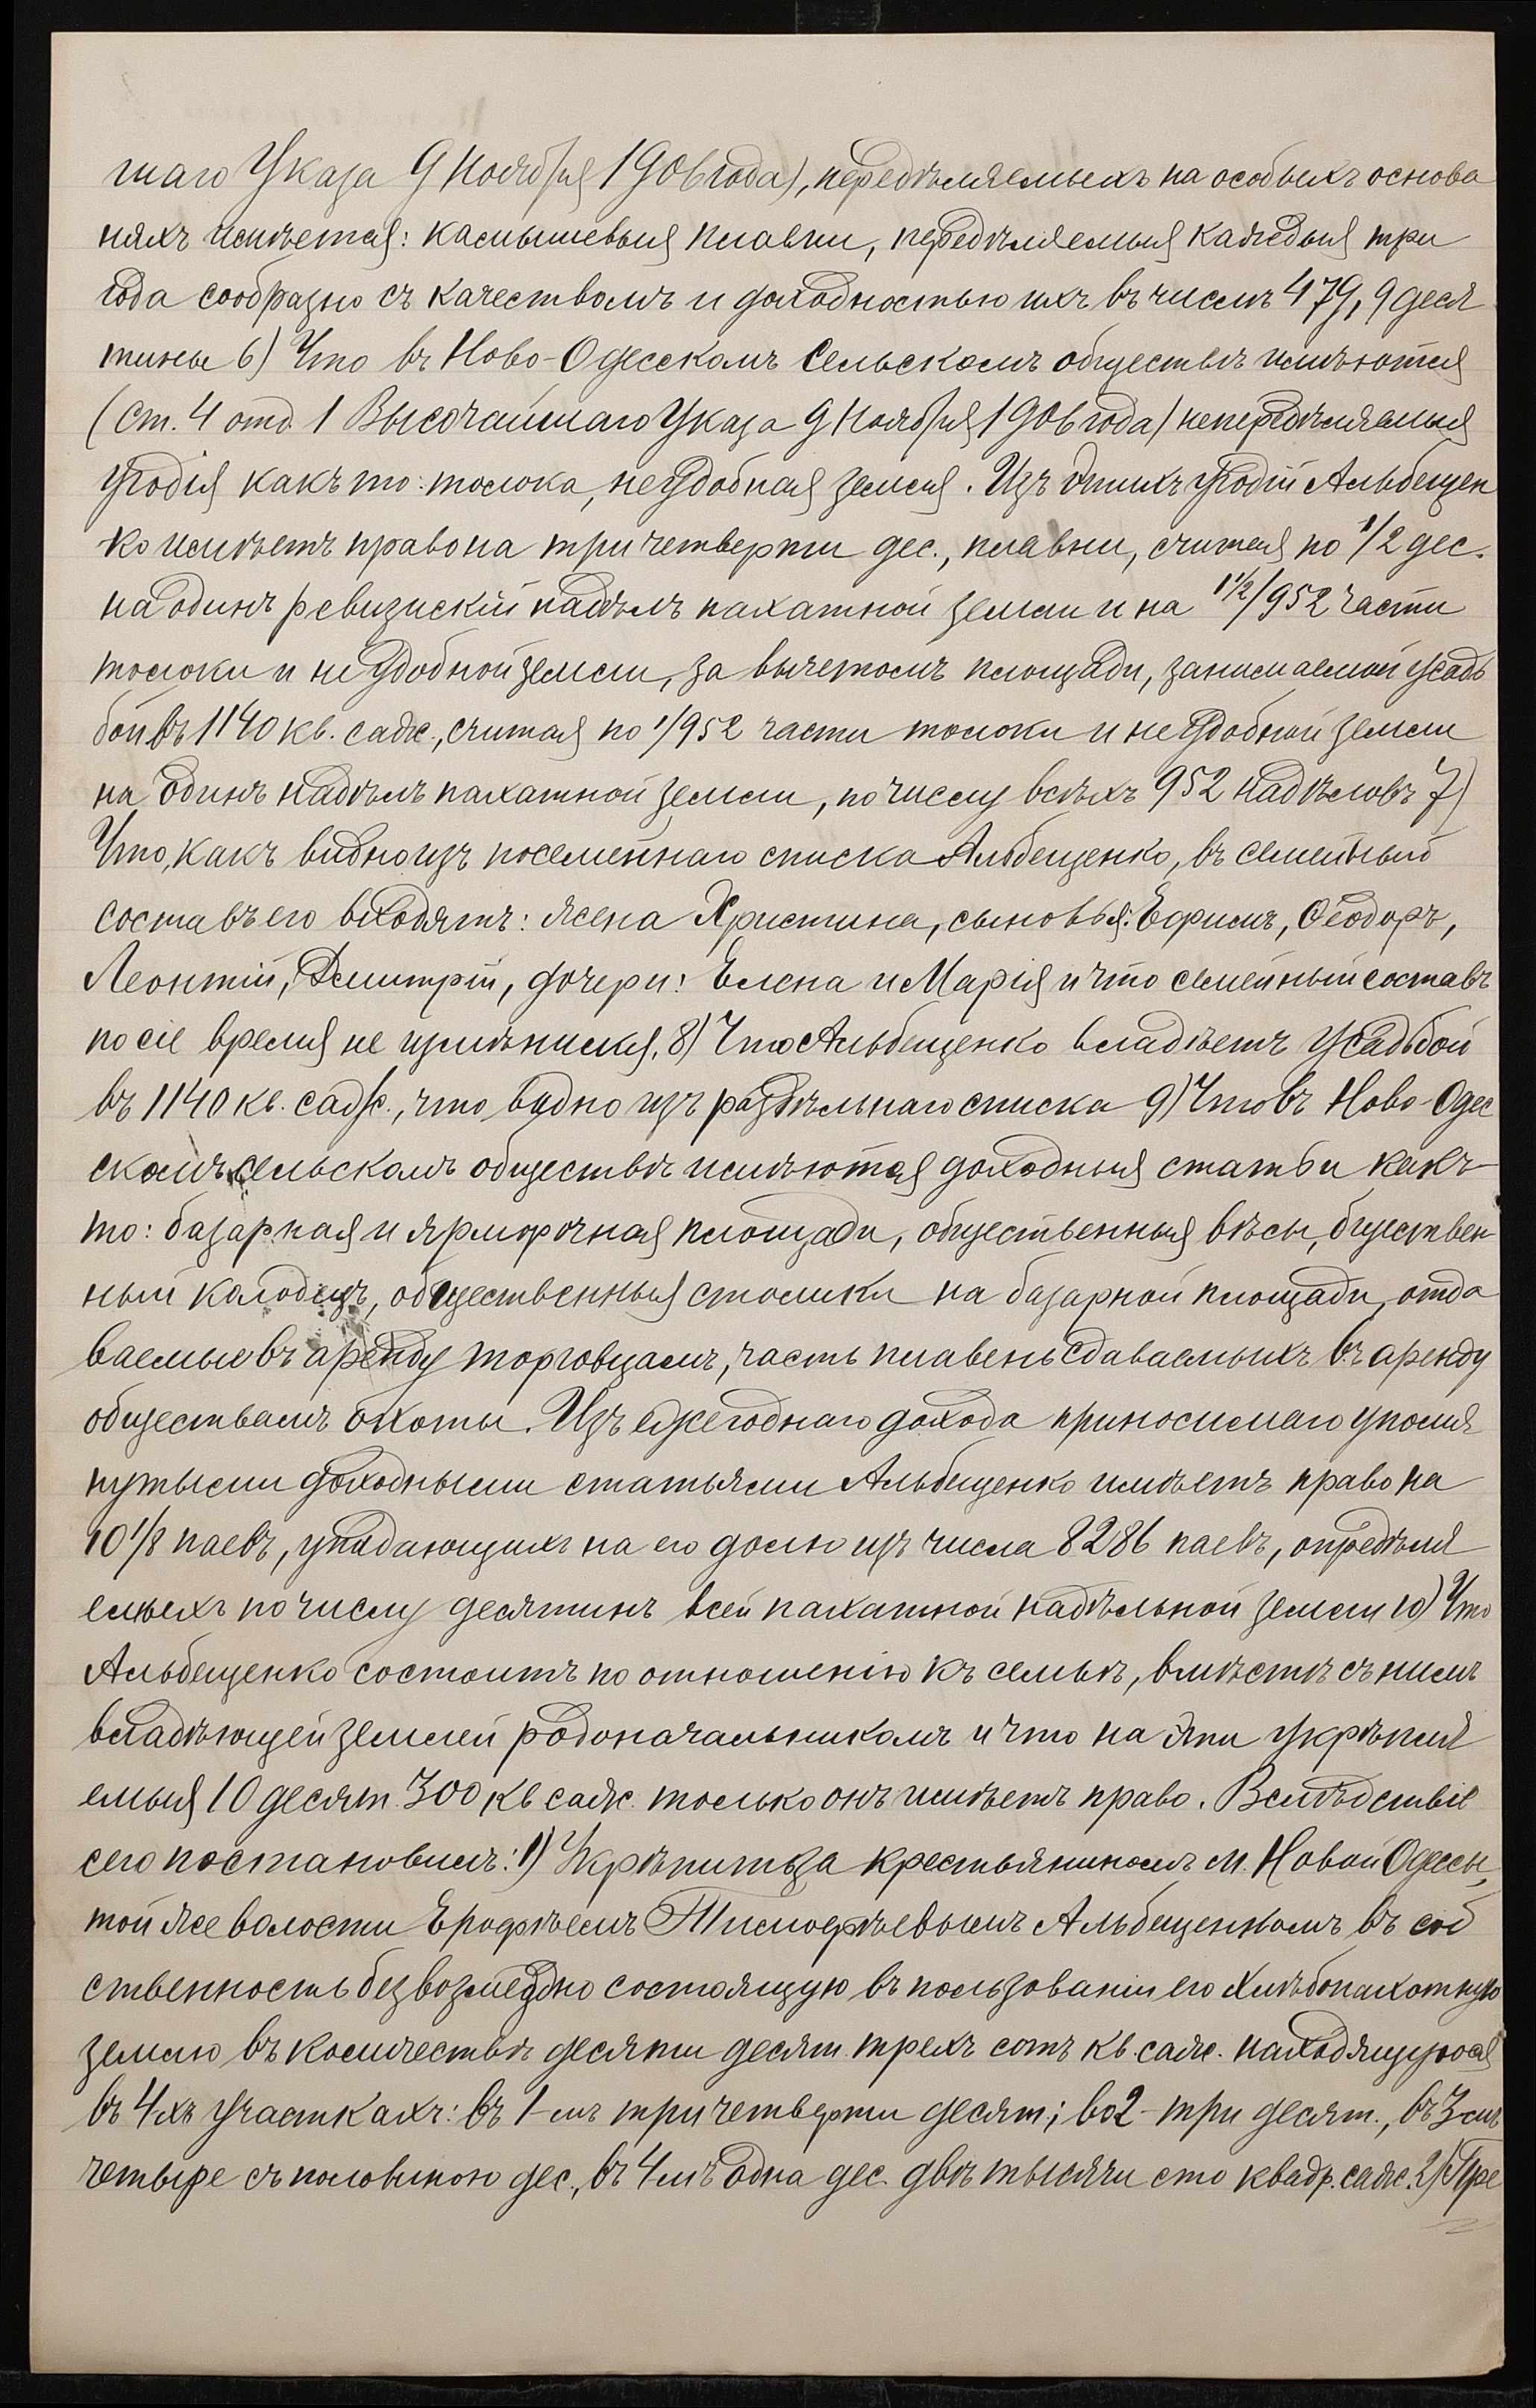 шаго Указа 9 Ноября 1906 года), передѣляемыхъ на особыхъ основа
нияхъ имѣется: камышевыя плавни, передѣляемыя каждыя три
года сообразно съ качествомъ и доходностью ихъ въ числѣ 479,9 деся
тины 6) Что въ Ново-Одесскомъ Сельскомъ обществѣ имѣются
(ст. 4 отд. 1 Высочайшаго Указа 9 Ноября 1906 года) непередѣляемыя
угодія какъ то: толока, неудобная земля. Изъ этихъ угодій Альбещен
ко имѣетъ право на три четверти дес., плавни, считая по 1/2 дес.
на одинъ ревизскій надѣлъ пахатной земли и на 1 1/2/952 части
толоки и неудобной земли, за вычетомъ площади, занимаемой усадь
бой въ 1140 кв. саж., считая по 1/952 части толоки и неудобной земли
на одинъ надѣлъ пахатной земли, по числу всѣхъ 952 надѣловъ 7)
Что, какъ видно изъ посемейнаго списка Альбещенко, въ семейный
составъ его входятъ: жена Христина, сыновья: Ефимъ, Ѳеодоръ,
Леонтій, Дмитрій, дочери: Елена и Марія и что семейный составъ
по сіе время не измѣнился, 8) Что Альбещенко владѣетъ усадьбой
въ 1140 кв. саж., что видно изъ раздѣльнаго списка 9) Что въ Ново-Одес
скомъ сельскомъ обществѣ имѣются доходныя статьи какъ-
то: базарная и ярмарочная площади, общественныя вѣсы, бщественн-
ный колодезь, общественныя столики на базарной площади, отда
ваемые въ аренду торговцамъ, часть плавень сдаваемыхъ въ аренду
обществамъ охоты. Изъ ежегоднаго дохода приносимаго упомя
нутыми доходными статьями Альбещенко имѣетъ право на
10 1/8 паевъ, упадающихъ на его долю изъ числа 8286 паевъ, опредѣля
емыхъ по числу десятинъ всей пахатной надѣльной земли 10) Что
Альбещенко состоитъ по отношенію къ семьѣ, вмѣстѣ съ нимъ
владѣющей землей родоначальникомъ и что на эти укрѣпля
емыя 10 десят. 300 кв саж. только онъ имѣетъ право. Вслѣдствіе
сего постановилъ: 1) Укрѣпить за крестьяниномъ м. Новой Одесы,
той же волости Ерофѣемъ Тимофѣевымъ Альбещенкомъ въ соб
ственность безвозмездно состоящую въ пользованіи его хлѣбопахотную
землю въ количествѣ десяти десят. трехъ сотъ кв. саж. находящуюся
въ 4хъ участкахъ: въ 1-мъ три четверти десят.; во 2-три десят., въ 3-мъ
четыре съ половиною дес., въ 4мъ одна дес. двѣ тысячи сто квадр. саж. 2) Пре